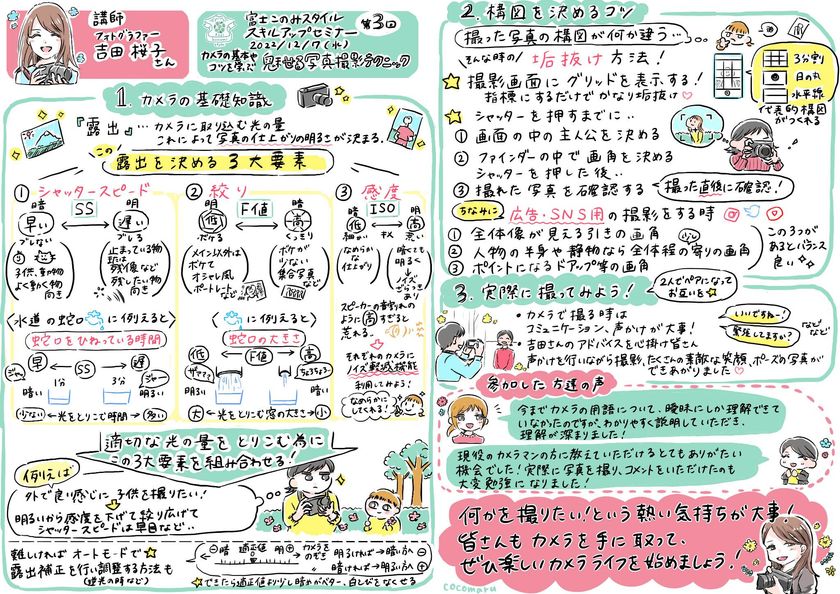 講師
フォトグラファー
吉田 桜子
さん
富士このみスタイル
スキルアップセミナー
2022/12/7(水)
第3回
カメラの基本や
コツを学ぶ
魅せる写真撮影テクニック
1. カメラの基礎知識
『露出』…カメラに取り込む光の量
これによって写真の仕上がりの明るさが決まる。
この
露出を決める3大要素
① シャッタースピード
暗 明
早い SS 遅い
ブレない ブレる
子供、動物
よく動く物
向き
止まっている物
または
残像など
残したい物
向き
② 絞り
明 暗
低 F値 高
ボケる くっきり
メイン以外は
ボケて
オシャレ風
ポートレートなど
ボケが
少ない
集合写真
など
③ 感度
暗 明
低 ISO 高
細かい キメ 荒い
なめらかな
仕上がり
暗くても
明るく
ノイズ
ざらつき
あり
スピーカーの音割れの
ように高すぎると
荒れる。
それぞれのカメラに
ノイズ軽減機能
利用してみよう!
なめらかに
してくれる!
〈水道の蛇口に例えると〉
蛇口をひねっている時間
早 SS 遅
ジャー 1分 3分 ジャー
暗い 明るい
少ない ←光をとりこむ時間→ 多い
〈に例えると〉
蛇口の大きさ
低 F値 高
ザママママ ちょろちょろ
明るい 暗い
大 ←光をとりこむ窓の大きさ→ 小
適切な光の量をとりこむ為に
この3大要素を組み合わせる!
例えば
外で良い感じに子供を撮りたい!
明るいから感度を下げて絞り広げて
シャッタースピードは早目など‥
難しければオートモードで
露出補正を行い調整する方法も
(逆光の時など)
⊖暗 適正値 明⊕
カメラを
のぞき
明るければ→暗い方へ⊖
暗ければ→明るい方へ⊕
できたら適正値より少し暗めがベター、白とびをなくせる
2. 構図を決めるコツ
撮った写真の構図が何か違う‥
そんな時の 垢抜け方法!
撮影画面にグリッドを表示する!
指標にするだけでかなり垢抜け♡
3分割
日の丸
水平線
代表的構図
がつくれる
シャッターを押すまでに‥
① 画面の中の主人公を決める
② ファインダーの中で画角を決める
シャッターを押した後‥
③ 撮れた写真を確認する
撮った直後に確認!
ちなみに 広告・SNS用の撮影をする時
① 全体像が見える引きの画角
② 人物の半身や静物なら全体程の寄りの画角
③ ポイントになるドアップ等の画角
この3つが
あるとバランス
良い
3. 実際に撮ってみよう!
2人でペアになって
お互いを
・カメラで撮る時は
コミュニケーション、声かけが大事!
いいですねー!
緊張してますか?
などなど
・吉田さんのアドバイスを心掛け皆さん
声かけを行いながら撮影、たくさんの素敵な笑顔、ポーズの写真が
できあがりました♡
参加した方達の声
今までカメラの用語について、曖昧にしか理解できて
いなかったのですが、わかりやすく説明していただき、
理解が深まりました!
現役のカメラマンの方に教えていただけるとてもありがたい
機会でした!実際に写真を撮り、コメントをいただけたのも
大変勉強になりました!
何かを撮りたい!という熱い気持ちが大事!
皆さんもカメラを手に取って、
ぜひ楽しいカメラライフを始めましょう!
cocomaru